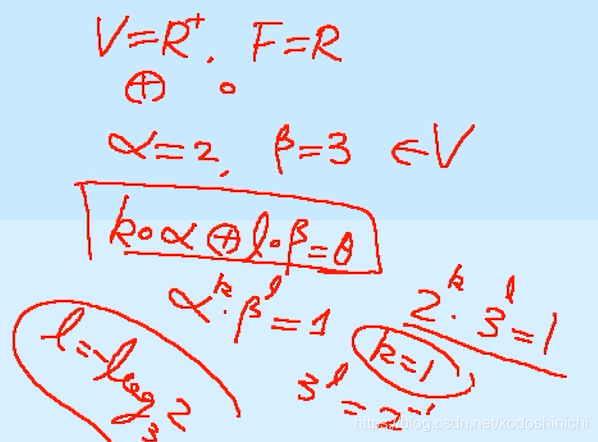 V=R⁺, F=R
⊕ ∘
α=2, β=3 ∈V
k∘α⊕l∘β=θ
αᵏ·βˡ=1
2ᵏ·3ˡ=1
k=1
3ˡ=2⁻¹
l=-log₃2
https://blog.csdn.net/kodoshinichi